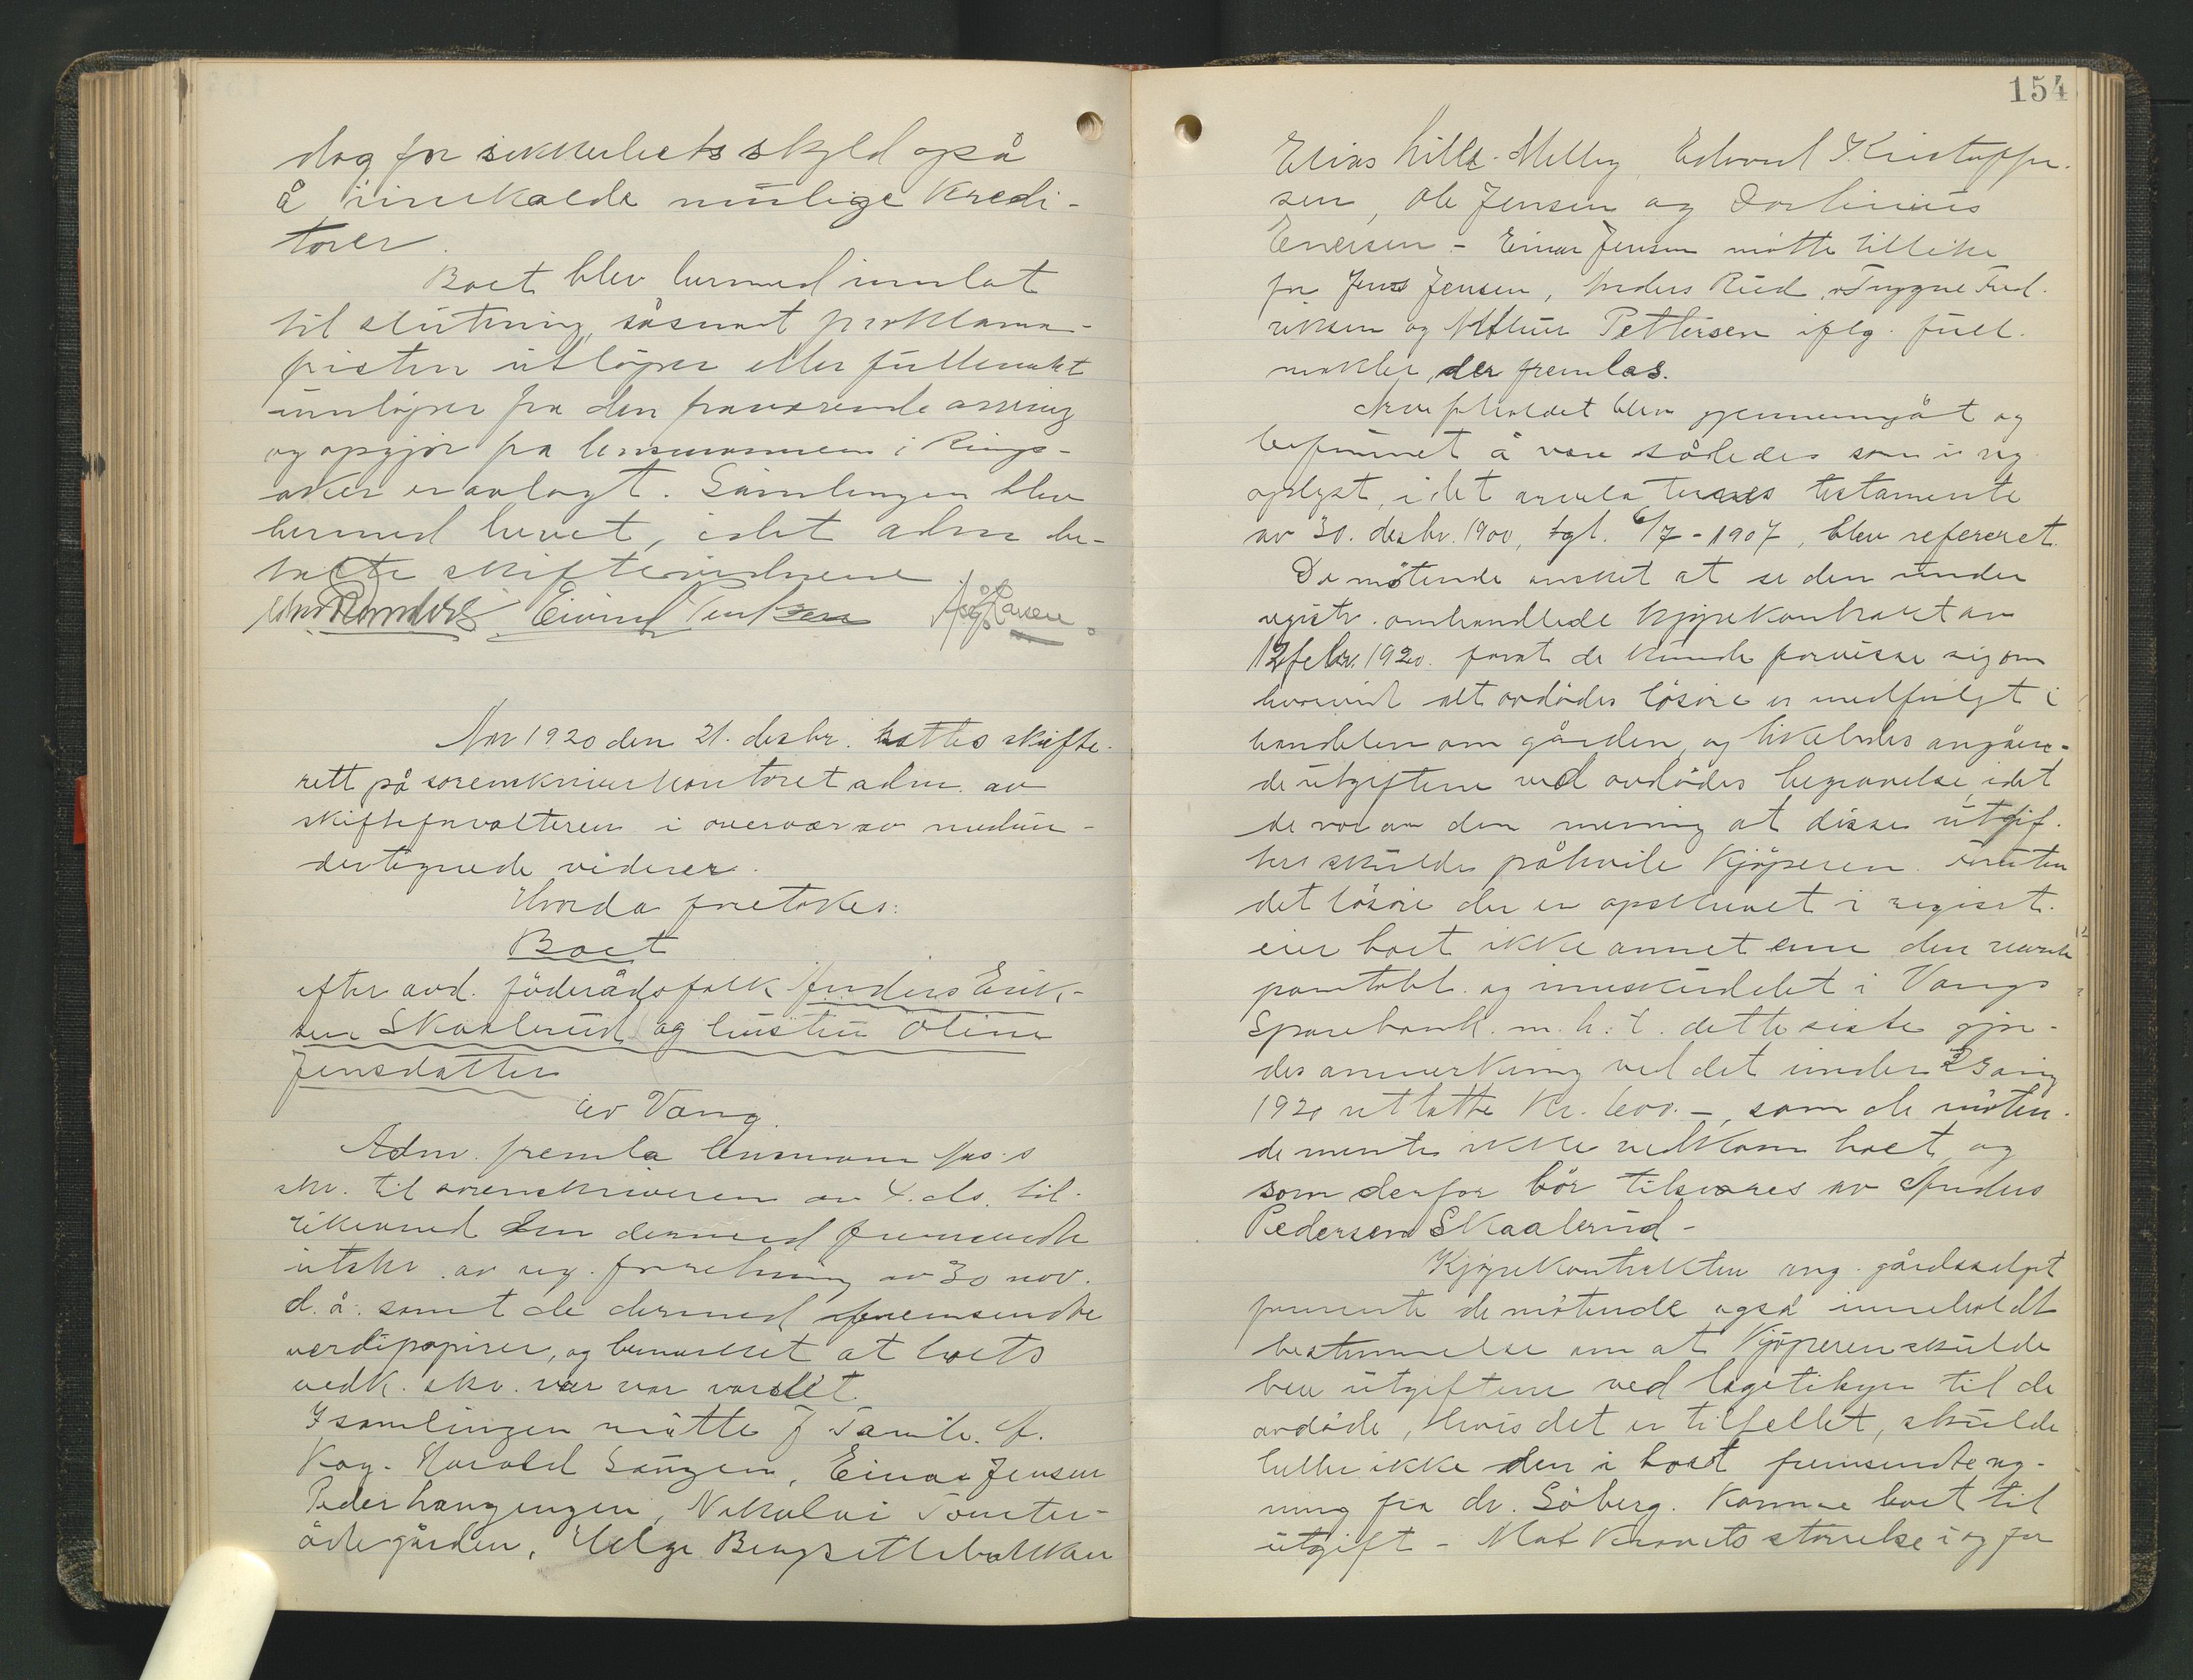 dog for sikkerhets skyld også
å innkalde mulige kredi-
torer.
Boet blev hermed innlat
til slutning, såsnart proklama-
fristen utløper eller fuldmakt
innløper fra den fraværende arving
og opgjør fra lensmannen i Rings-
aker er avlagt. Samlingen blev
hermed hevet, idet adm. be-
talte skiftevidnene
Eivind
Aar 1920 den 21. desbr. hattes skifte-
rett på sorenskriverkontoret adm. av
skifteforvalteren i overvær av nedun-
dertegnede vidner.
Hvorda foretokes:
Boet
efter avd. föderådsfolk Anders Erik-
sen Skaalerud og hustru Oline
Jensdatter
av Vang.
Adm. fremla lensmann
skr. til sorenskriveren av 4. ds. til-
likemed den dermed fremsendte
utskr. av reg. forretning av 30 nov.
d. å. samt de dermed fremsendte
verdipapirer, og bemerket at boets
vedk. skr. var varslet.
I samlingen møtte J.
Harald Sangen, Einar Jensen
Peder Haugengen, Nikolai Tomter-
ödegården, Helge
154
Elias Lille-Melby, Edvard Kristoffer-
sen, Ole Jensen og
Enersen - Einar Jensen møtte tillike
for Jens Jensen, Anders Rud, Trygve Fred-
riksen og Pettersen iflg. full-
makter der fremlas.
Arveforholdet blev gjennemgåt og
befunnet å være således som i reg
oplyst, idet testamente
av 30. desbr. 1900, tgl. 6/7-1907, blev referert.
De møtende ønsket at se den under
registr. omhandlede kjøpekontrakt av
12 febr. 1920. forat de kunde forvisse sig om
hvorvidt alt avdødes løsøre er medfulgt i
handelen om gården, og likeledes angåen-
de utgiftene ved avdødes begravelse, idet
de var av den mening at disse utgif-
ter skulde påhvile kjøperen. Foruten
det løsøre der er opskrevet i registr.
eier boet ikke annet enn den nevnte
pantobl. og innskuddet i Vangs
Sparebank. m. h. t. dette siste gjor-
des anmerkning ved det under
1920 uttatte kr. 600.-, som de møten-
de mente ikke vedkom boet og
som derfor bör tilsvares av Anders
Pedersen Skaalerud -
Kjøpekontrakten ang. gårdssalget
formente de møtende også inneholdt
bestemmelse om at kjøperen skulde
bære utgiftene ved lægetilsyn til de
avdøde, hvis det er tilfellet, skulde
heller ikke den i boet fremsendte reg-
ning fra dr. Söberg. komme boet til
utgift - Mot kravets størrelse i og for